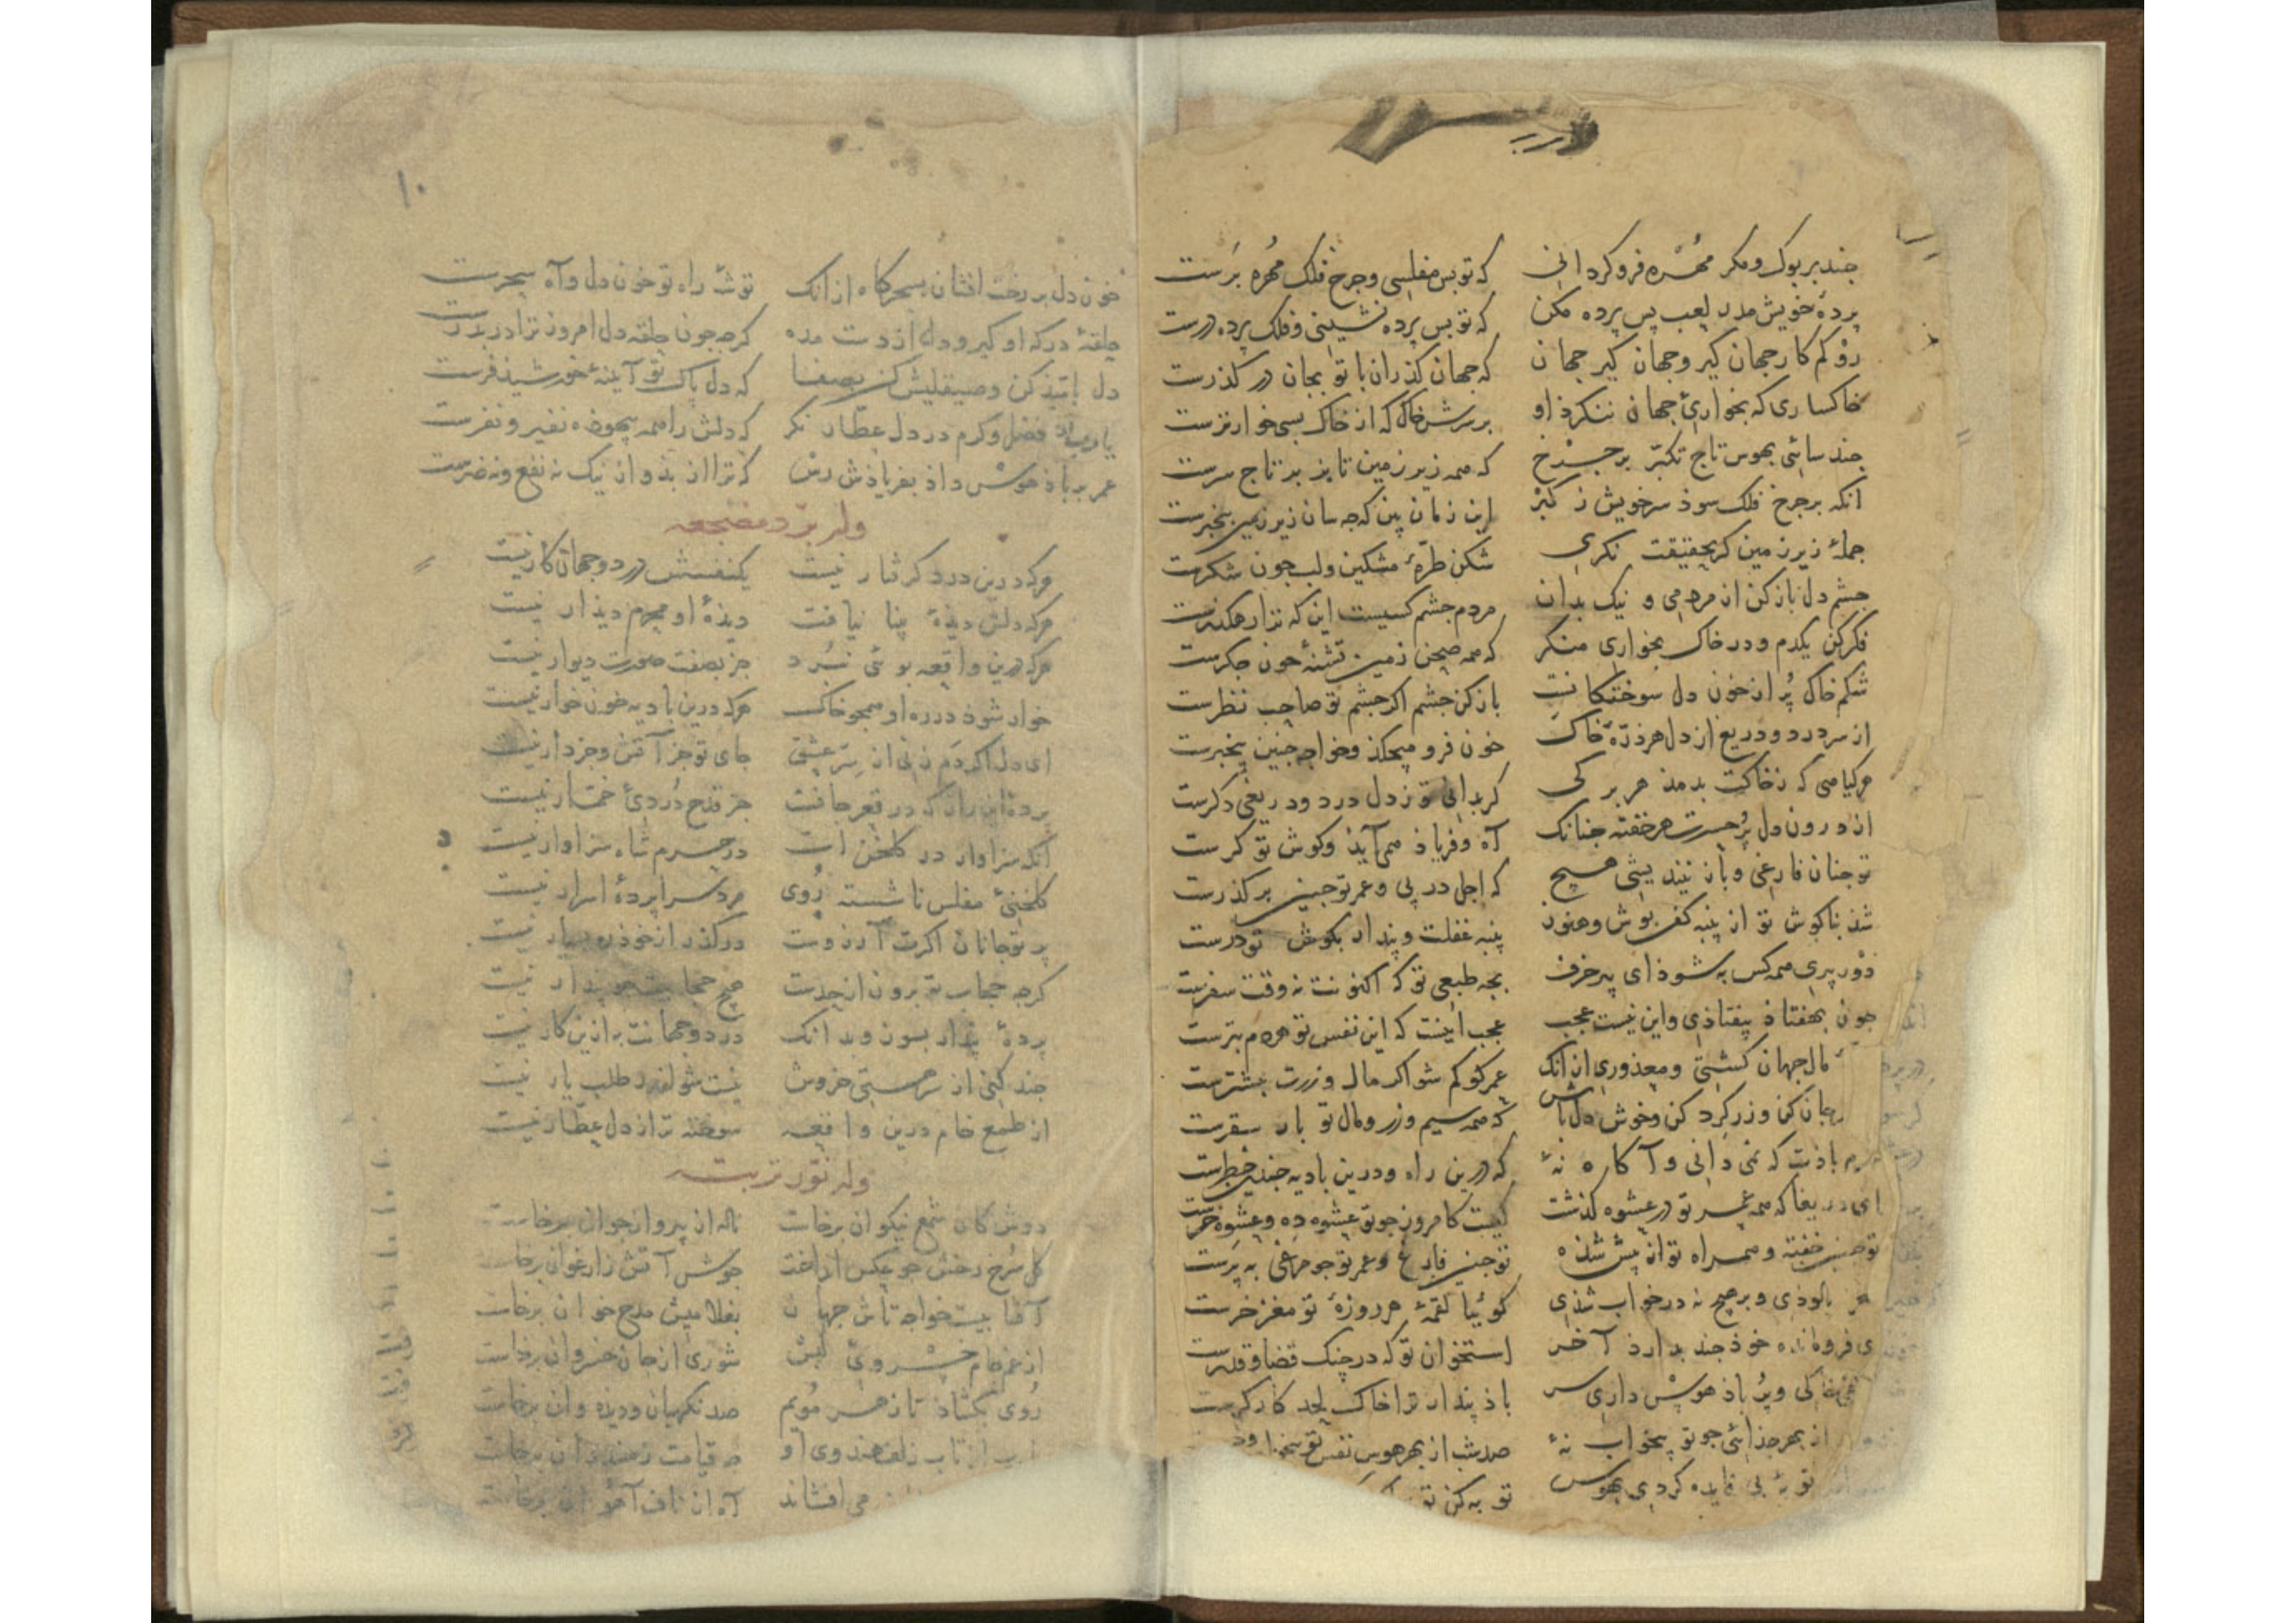 چند بر بوک و مکر مهره فرو کردانی که تو بس مفلسی و چرخ فلک مهره برست
پردهٔ خویش مدر لعب پس پرده مکن که تو پس پرده نشینی و فلک پرده درست
رو کم کار جهان کیر و جهان کیر جهان که جهان کذران با تو بجان در کذرست
خاکساری که بخواری جهان ننکرذ او بر سرش خاک که از خاک بسی خوارترست
چند سائی بهوس تاج تکبر بر چرخ که همه زیر زمین تا بر بر تاج سرست
انکه بر چرخ فلک سوذ سر خویش ز کبر این زمان بین که چه سان زیر زمین بیخبرست
جملهٔ زیر زمین کر بحقیقت نکری شکن طرهٔ مشکین و لب چون شکرست
چشم دل باز کن از مردمی و نیک بدان مردم چشم کسیست این که ترا رهکذرست
فکر کن یکدم و در خاک بخواری منکر که همه صحن زمین تشنهٔ خون جکرست
شکم خاک پر از خون دل سوختکانست باز کن چشم اکر چشم تو صاحب نظرست
از سر درد و دریغ از دل هر ذرهٔ خاک خون فرو میچکذ و خواجه چنین بیخبرست
هر کیاهی که ز خاکت بدمذ هر برکی کر بدانی تو ز دل درد و دریغی دکرست
از درون دل پر حسرت هر خفته چنانک آه و فریاذ همی آیذ و کوش تو کرست
تو چنان فارغی و باز نیندیشی هیچ که اجل در پی و عمر تو چنین بر کذرست
شذ بناکوش تو از پنبه کفن پوش و هنوز پنبه غفلت و پندار بکوش تو درست
دور پیری همه کس به شوذ ای پیر خرف بچه طبعی تو که اکنونت نه وقت سفرست
چون بهفتاذ بیفتاذی و این نیست عجب عجب اینست که این نفس تو هر دم بترست
مال جهان کشتی و معذوری از آنک عمر کو کم شو اکر مال و زرت بیشترست
جهان کن و زر کرد کن و خوش دل باش که همه سیم و زر و مال تو بار سفرست
شرم باذت که نمی دانی و آکاه نهٔ که درین راه و درین بادیه چندین خطرست
ای دریغا که همه عمر تو در عشوه کذشت کیست کامروز چو تو عشوه ده و عشوه خرست
تو چنین خفته و همراه تو از پیش شذه تو چنین فارغ و عمر تو چو مرغی بپرست
بالوذی و بر هیچ نه در خواب شذی کوئیا لقمهٔ هر روزهٔ تو مغز خرست
ی فرومانده خوذ چند بدارذ آخر استخوان تو که در چنک قضا و قدرست
خاکی و پر باذ هوس داری سر باذ پندار ترا خاک لحد کارکرست
از بهر خدائی چو تو بیخواب نهٔ صد شب از بهر هوس نفس تو
توبهٔ بی فایده کردی بهوس توبه کن تو
۱۰
خون دل بر رخت افشان بسحرکاه از انک توشهٔ راه تو خون دل و آه سحرست
حلقهٔ درکه او کیر و دل از دست مده کرچه چون حلقه دل امروز ترا در بدرست
دل بتبذ کن و صیقلیش کن بصفا که دل پاک تو آینهٔ خورشید فرست
یارب از فضل و کرم در دل عطار نکر که دلش را همه بیهوذه نفیر و نفرست
عمر بر باذ هوس داذ بفریاذش رس که ترا از بذ و از نیک نه نفع و نه ضرست
وله برد مضجعه
هر که درین درد کرفتار نیست یکنفسش در دو جهان کار نیست
هر که دلش دیدهٔ بینا نیافت دیذهٔ او محرم دیذار نیست
هر که درین واقعه بوئی نبرد جز بصفت صورت دیوار نیست
خوار شوذ در ره او همچو خاک هر که درین بادیه خون خوار نیست
ای دل اکر دم زنی از سر عشق جای تو جز آتش و جز دار نیست
پردهٔ این راز که در قعر جانست جز قدح دردی خمار نیست
آنکه سزاوار در کلخن است در حرم شاه سزاوار نیست
کلخنی مفلس ناشسته روی مرد سراپردهٔ اسرار نیست
پرتو جانان اکرت آرزوست درکذر از خوذ ره بسیار نیست
کرچه حجاب تو برون از حدست هیچ حجابیت چو پندار نیست
پردهٔ پندار بسوز و بدانک در دو جهانت به ازین کار نیست
چند کنی از سر هستی خروش نیست شو اندر طلب یار نیست
از طمع خام درین واقعه سوخته تر از دل عطار نیست
وله نور تربته
دوش کان شمع نیکوان برخاست ناله از پیر و از جوان برخاست
کل سرخ رخش چو عکس انداخت جوش آتش ز ارغوان برخاست
آفتابیست خواجه تاش جهان بغلامیش مدح خوان برخاست
از غم جام خسروی لبش شوری از جان خسروان برخاست
روی بکشاذ تا ز هر مویم صد نکهبان و دیذه وان برخاست
از تاب زلف هندوی او صد قیامت ز هندوان برخاست
می افشاند آه از ناف آهوان برخاست